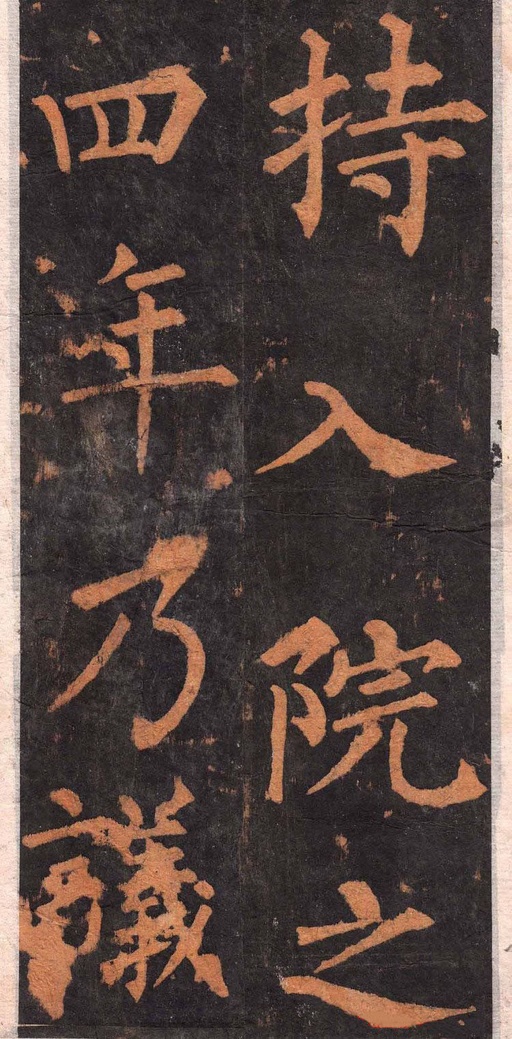 持入院之
四年乃議